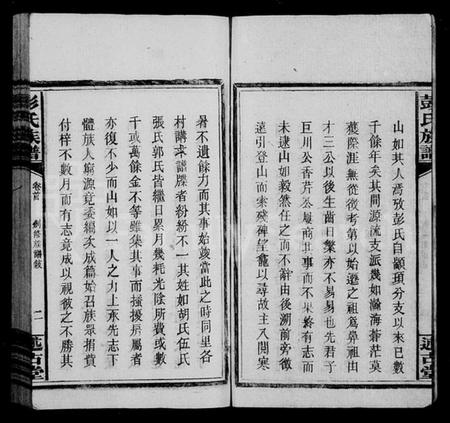 彭氏族譜
述古堂
山如其人焉攷彭氏自顓頊分支以來已數
千餘年矣其間源流支派幾如瀚海蒼茫莫
獲涯涘無從後考第以始遷之祖爲鼻祖由
才三公以後生齒日繁亦不易易也先君子
巨川公香芹公屢商北事而不果終有志而
未逮山如毅然任之而不辭由後溯前旁徵
遠引登山而求殘碑望龕以尋故主入閱寒
暑不遺餘力而其事始竣當此之時同里各
村購求譜牒者粉粉不一其姓如胡氏伍氏
張氏郭氏皆繼日累月幾耗光陰所費或數
千或萬餘金不等雖集其事而擾擾房屬者
亦復不少而山如以一人之力上承先志下
體族人窮源竟委編次成篇始召族眾捐貲
付梓不數月而有志竟成以視彼之不勝其
彭氏族譜
卷首
創修族譜敘
二
述古堂